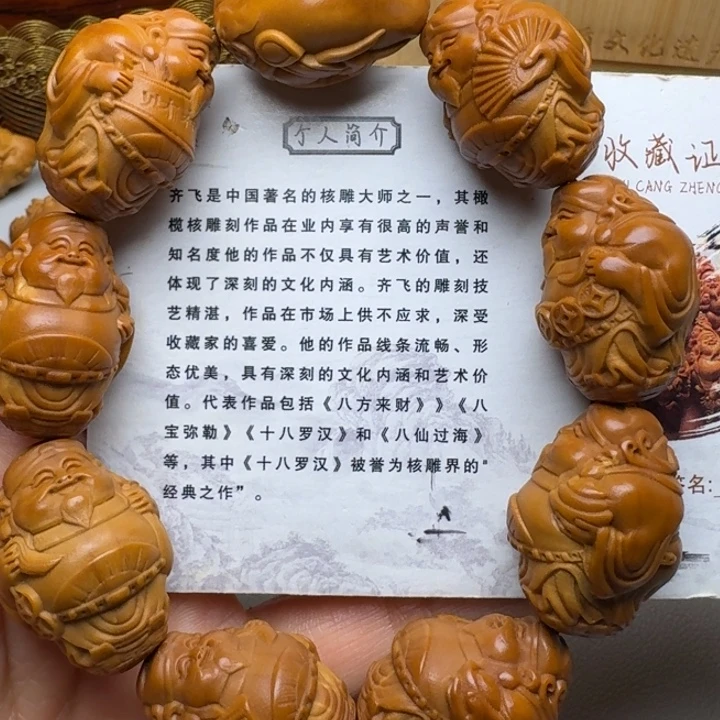 个人简介
齐飞是中国著名的核雕大师之一，其橄
榄核雕刻作品在业内享有很高的声誉和
知名度他的作品不仅具有艺术价值，还
体现了深刻的文化内涵。齐飞的雕刻技
艺精湛，作品在市场上供不应求，深受
收藏家的喜爱。他的作品线条流畅、形
态优美，具有深刻的文化内涵和艺术价
值。代表作品包括《八方来财》》《八
宝弥勒》《十八罗汉》和《八仙过海》
等，其中《十八罗汉》被誉为核雕界的"
经典之作”。
收藏证
CANG ZHENG
签名:
文化